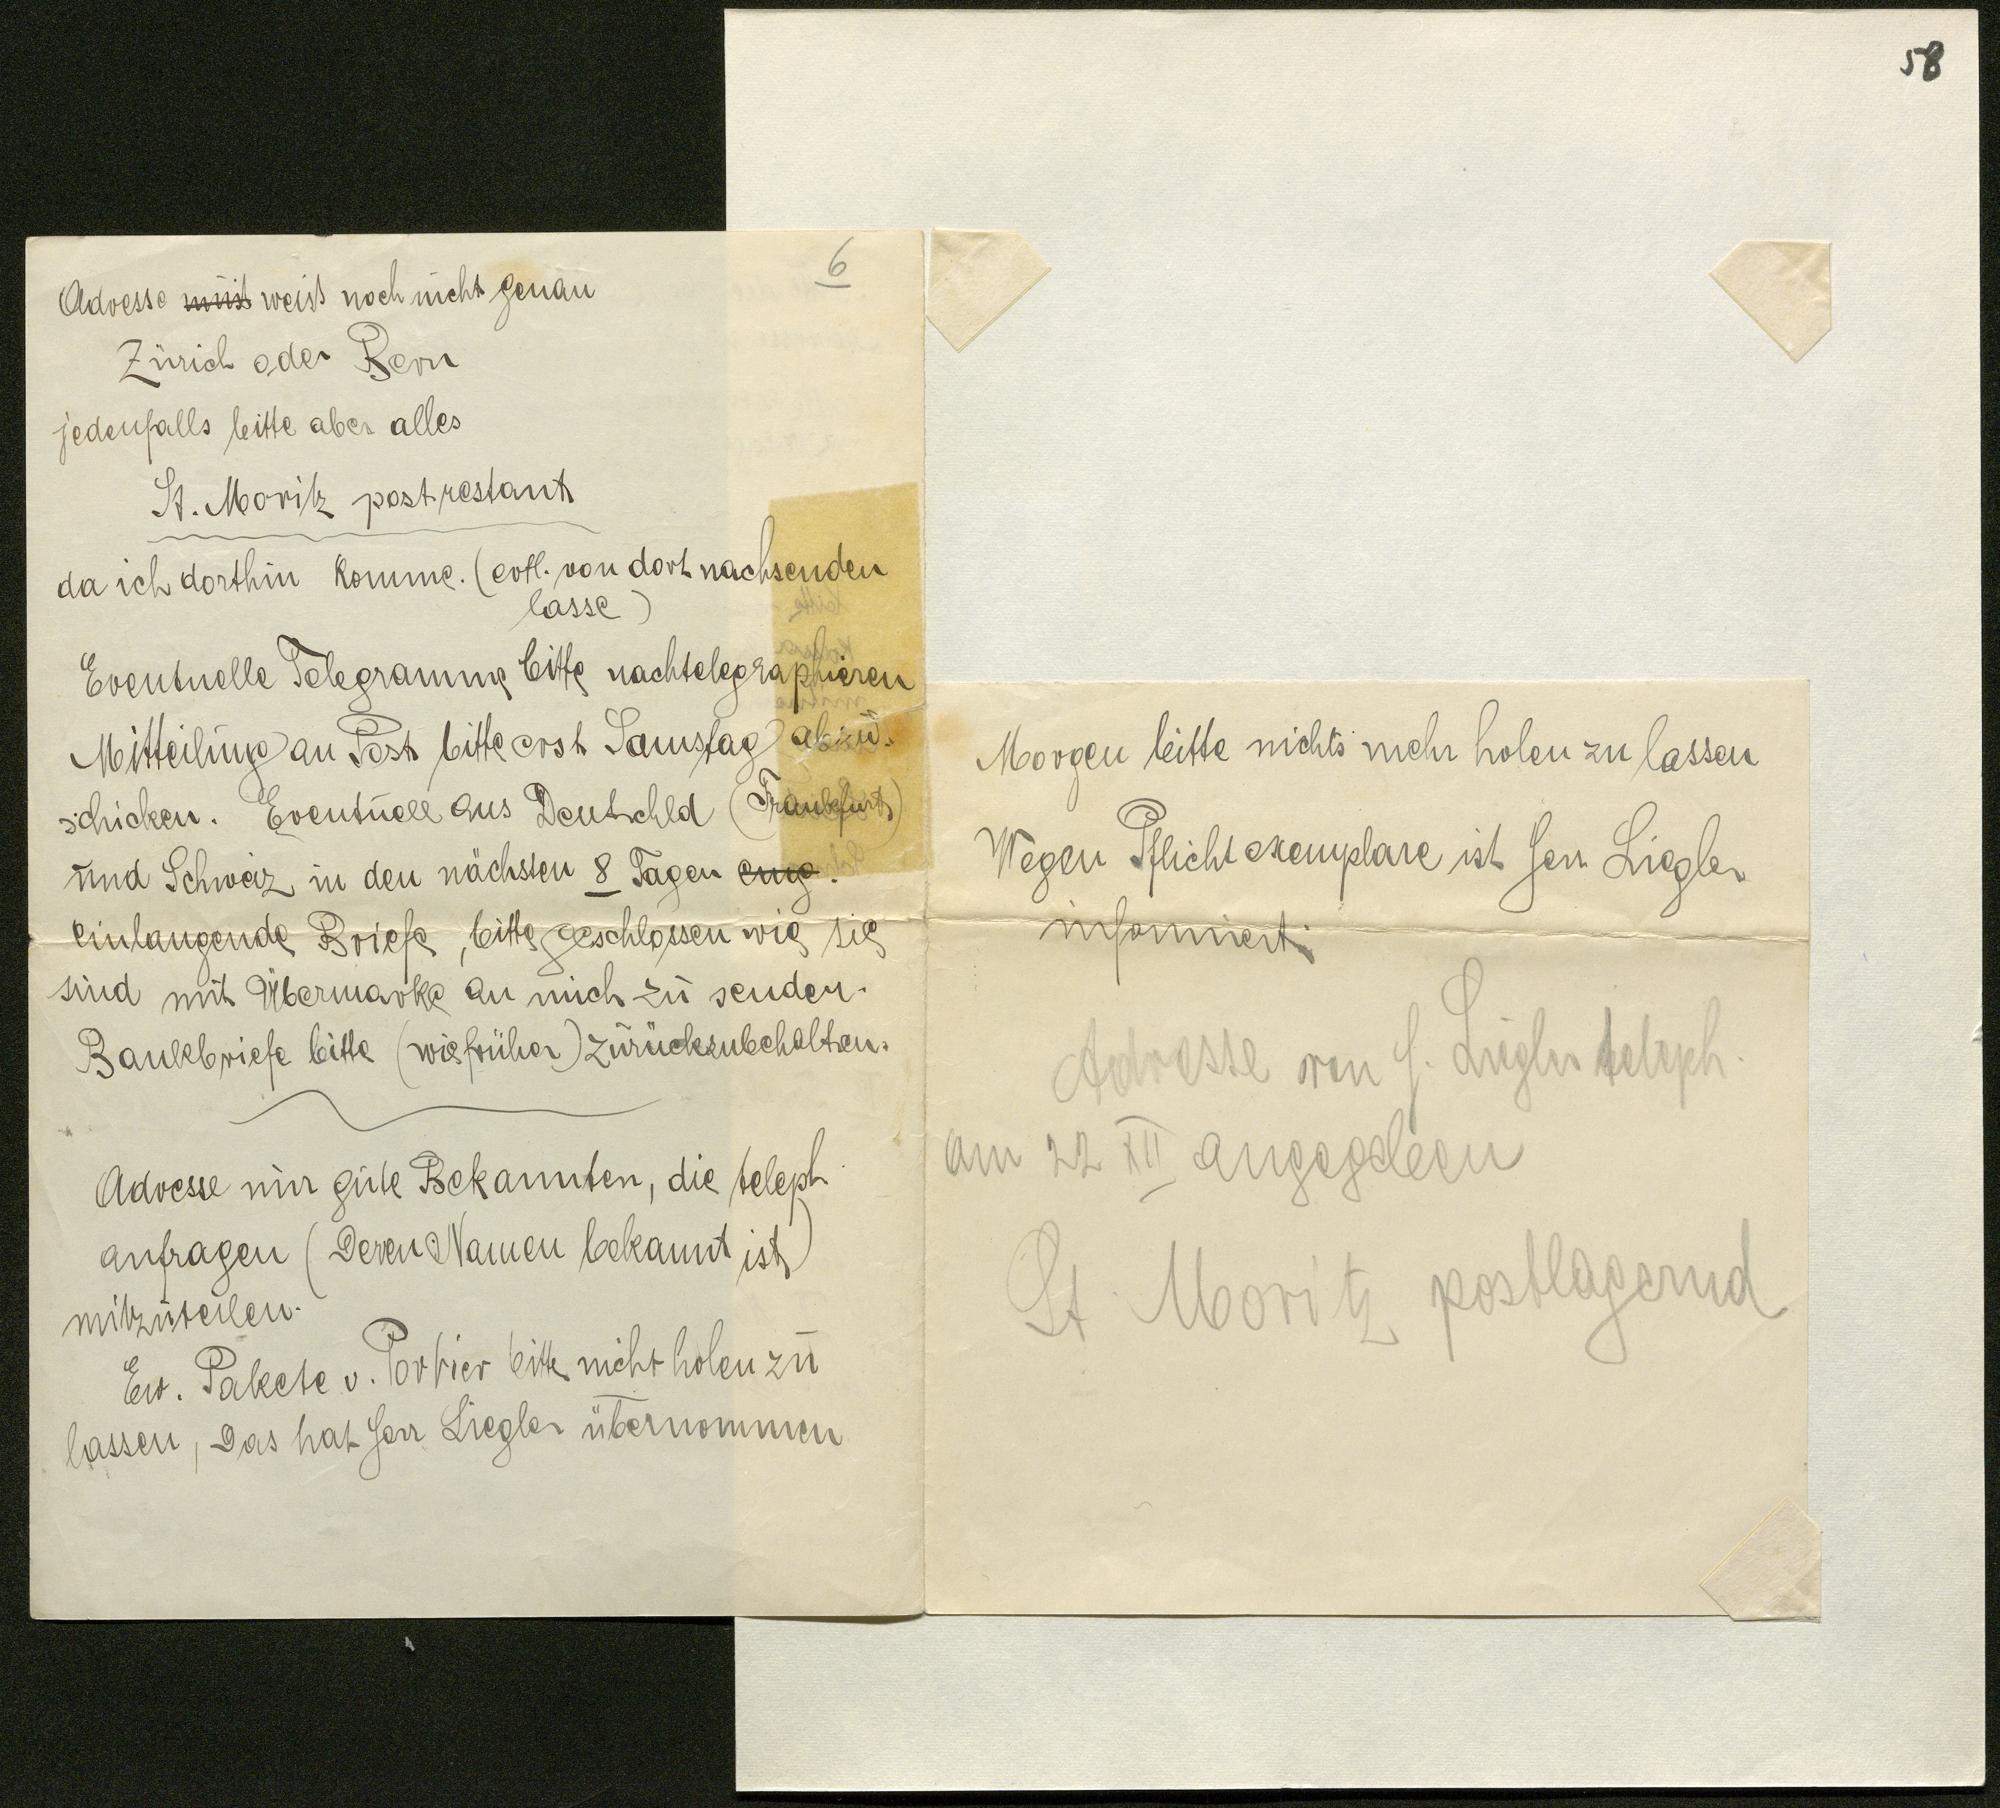 58
6
Adresse müst weist noch nicht genau
Zürich oder Bern
jedenfalls bitte aber alles
St. Moritz postrestant
da ich dorthin komme. (evtl. von dort nachsenden
lasse)
Eventuelle Telegramme bitte nachtelegraphieren
Mitteilung an Post bitte erst Samstag abzu-
schicken. Eventuell aus Deutschld (Frankfurt)
und Schweiz in den nächsten 8 Tagen
einlangende Briefe, bitte geschlossen wie sie
sind mit Übermarke an mich zu senden.
Bankbriefe bitte (wie früher) zurückzubehalten.
Adresse nur gute Bekannten, die teleph
anfragen (Deren Namen bekannt ist)
mitzuteilen.
Ev. Pakete v. Portier bitte nicht holen zu
lassen, Das hat Herr Liegler übernommen
Morgen bitte nichts mehr holen zu lassen
Wegen Pflichtexemplare ist Herr Liegler
informiert.
Adresse von H. Liegler teleph.
am 22 XII angegeben
St. Moritz postlagernd